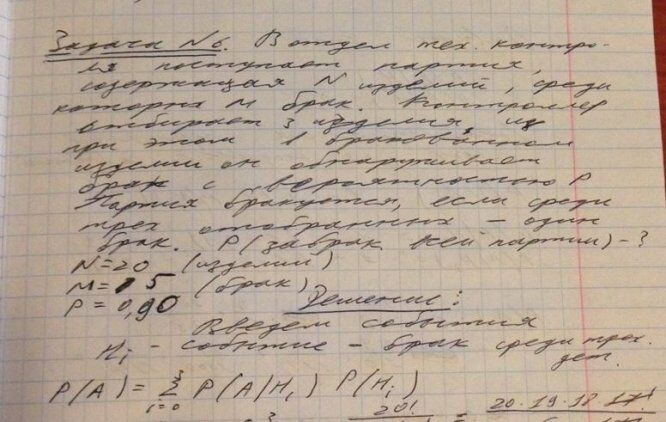 Задача №6. В отдел тех. контро-
ля поступает партия,
содержащая N изделий, среди
которых M брак. Контроллер
отбирает 3 изделия, из
при этом в бракованном
изделии он обнаруживает
брак с вероятностью P
Партия бракуется, если среди
трех отобранных - один
брак. P(забрак. всей партии) - ?
N=20 (изделий)
M=15 (брак)
P=0,90 Решение:
Введем события
Hi - событие - брак среди трех
дет.
P(A) = Σ P(A|Hi) P(Hi)
i=0
20! = 20·19·18·17!